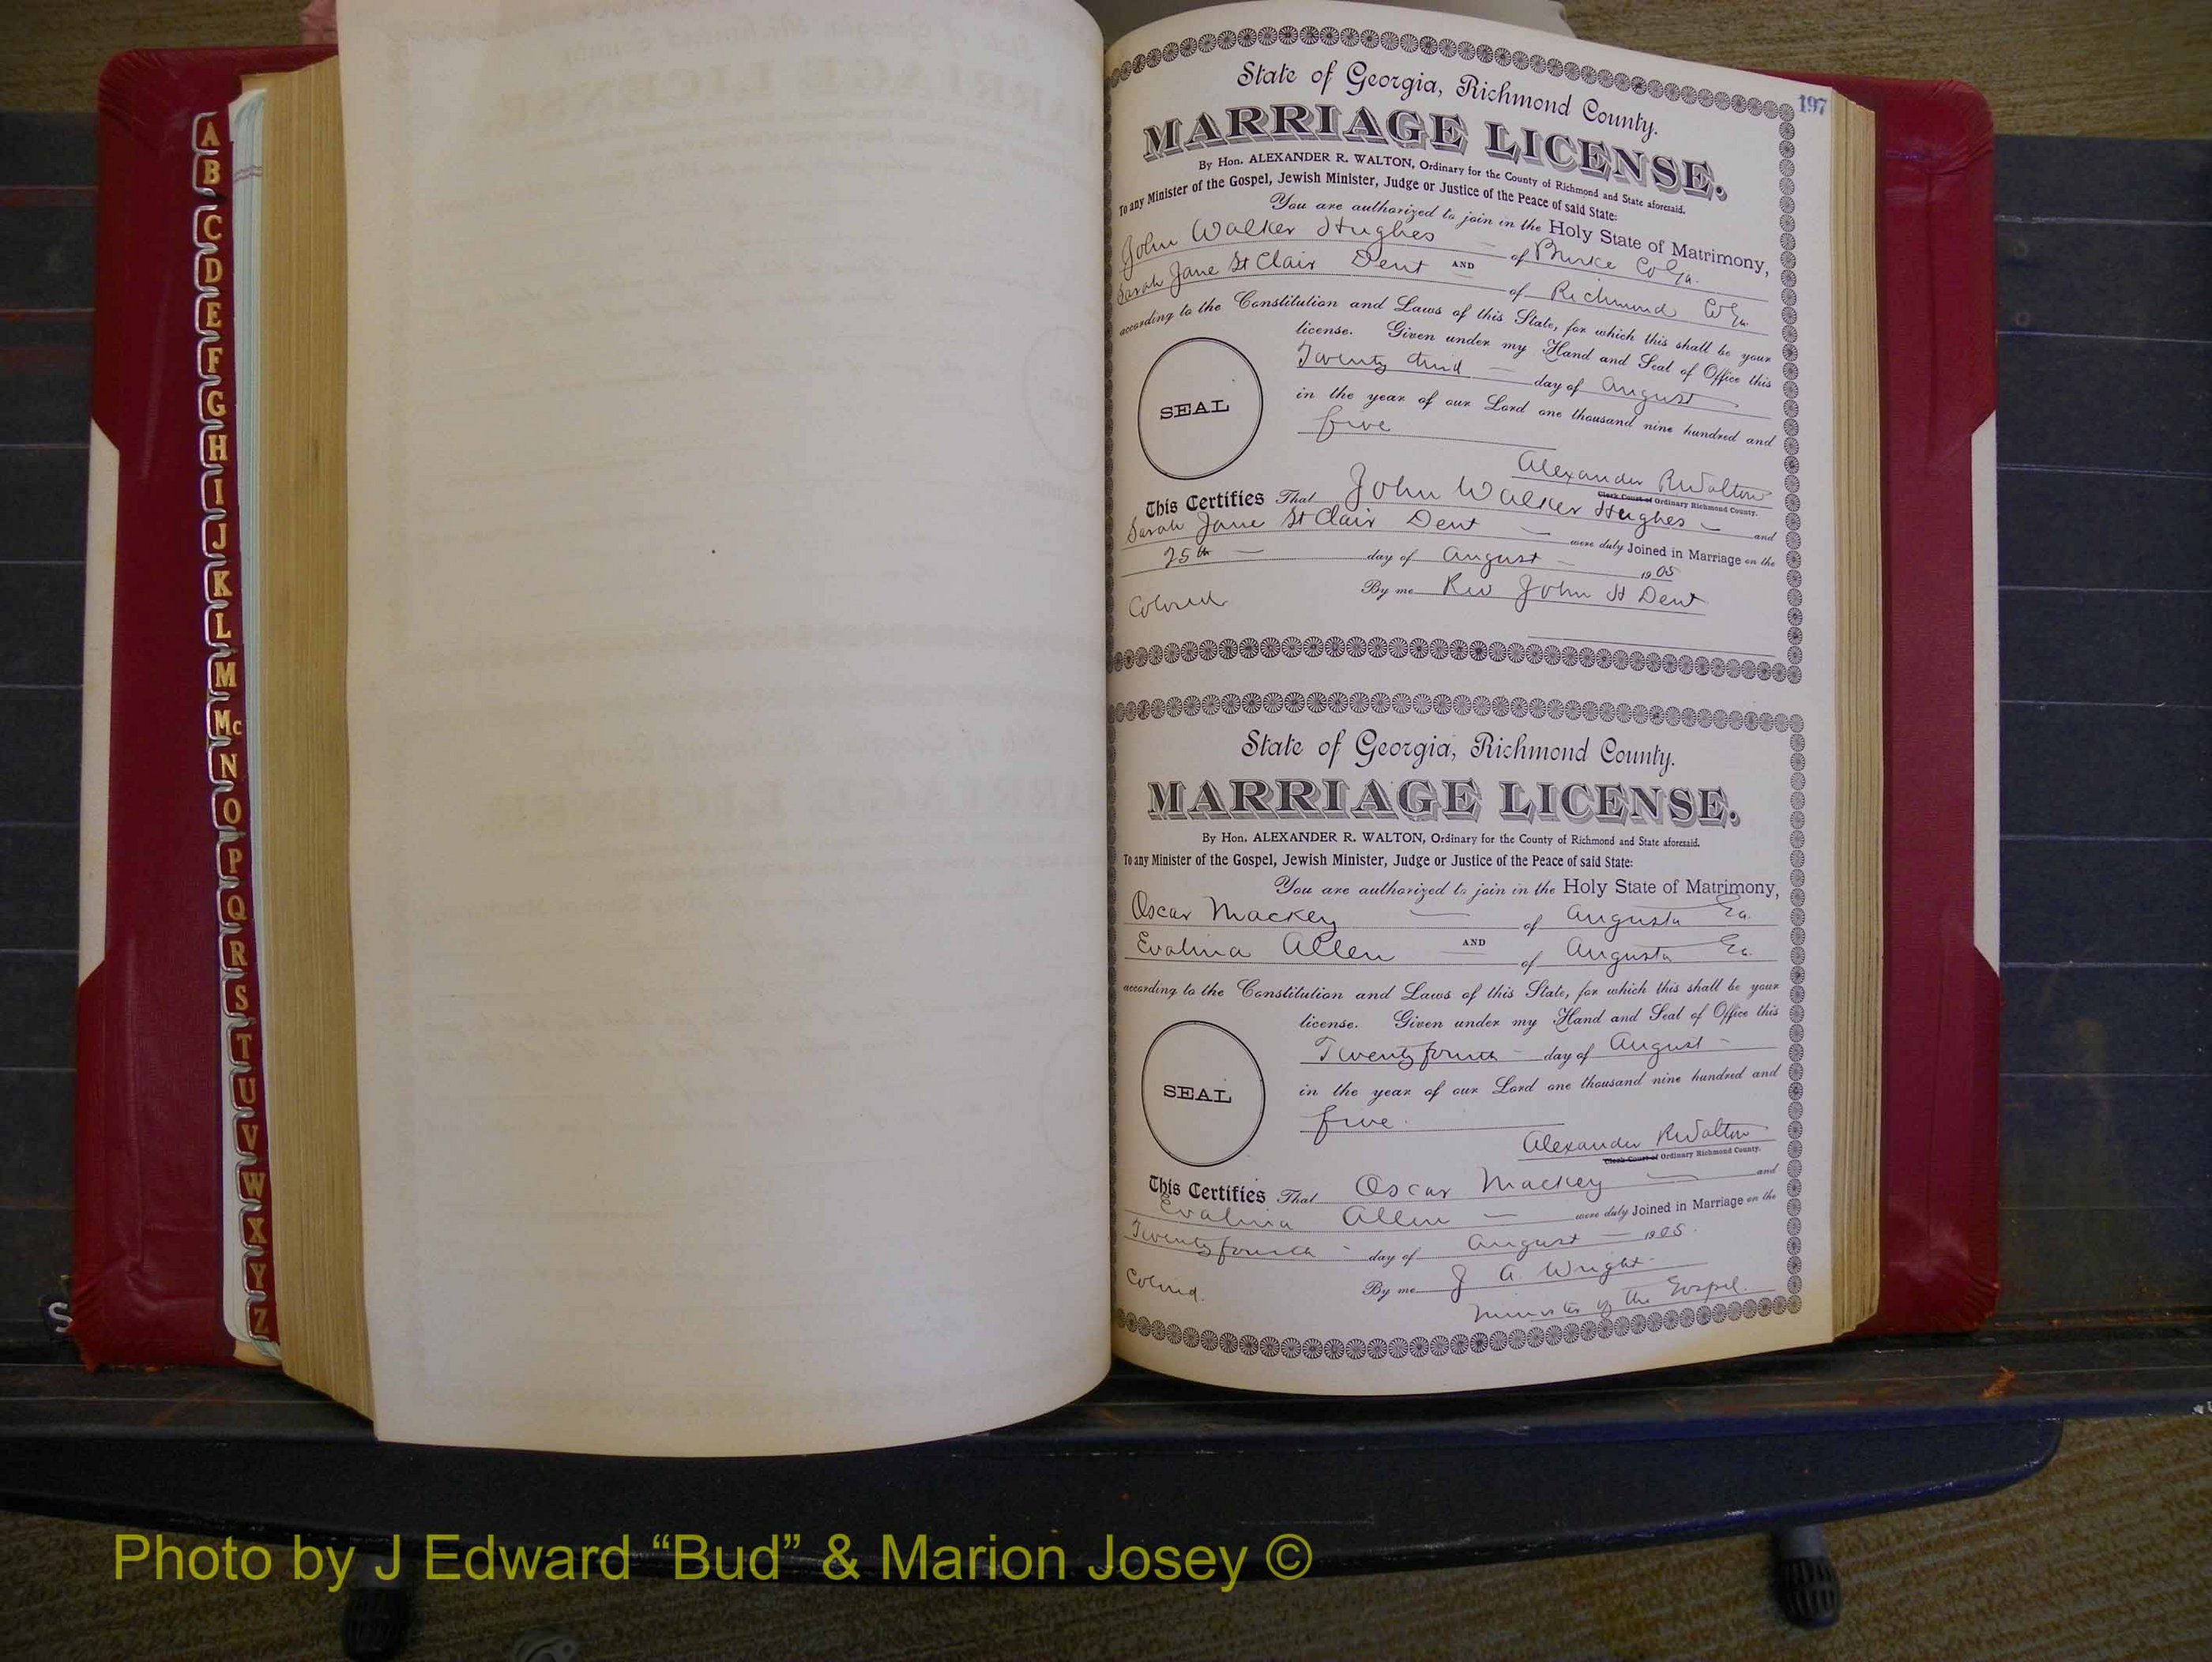 A
B
C
D
E
F
G
H
I
J
K
L
M
Mc
N
O
P
Q
R
S
T
U
V
W
X
Y
Z
S
197
State of Georgia, Richmond County.
MARRIAGE LICENSE.
By Hon. ALEXANDER R. WALTON, Ordinary for the County of Richmond and State aforesaid.
To any Minister of the Gospel, Jewish Minister, Judge or Justice of the Peace of said State:
You are authorized to join in the Holy State of Matrimony,
John Walker Hughes — of Burke Co Ga.
AND
Sarah Jane St Clair Dent of Richmond Co Ga
according to the Constitution and Laws of this State, for which this shall be your
license. Given under my Hand and Seal of Office this
Twenty third — day of August
in the year of our Lord one thousand nine hundred and
five
SEAL
Alexander R Walton
Clerk Court of Ordinary Richmond County.
This Certifies That John Walker Hughes — and
Sarah Jane St Clair Dent — were duly Joined in Marriage on the
25th — day of August — 1905
Colored By me Rev John H Dent
State of Georgia, Richmond County.
MARRIAGE LICENSE.
By Hon. ALEXANDER R. WALTON, Ordinary for the County of Richmond and State aforesaid.
To any Minister of the Gospel, Jewish Minister, Judge or Justice of the Peace of said State:
You are authorized to join in the Holy State of Matrimony,
Oscar Mackey — of Augusta Ga.
AND
Evalina Allen of Augusta Ga.
according to the Constitution and Laws of this State, for which this shall be your
license. Given under my Hand and Seal of Office this
Twenty fourth — day of August —
in the year of our Lord one thousand nine hundred and
five.
SEAL
Alexander R Walton
Clerk Court of Ordinary Richmond County.
This Certifies That Oscar Mackey — and
Evalina Allen — were duly Joined in Marriage on the
Twenty fourth - day of August — 1905.
Colored. By me J A. Wright-
Minister of the Gospel.
Photo by J Edward “Bud” & Marion Josey ©